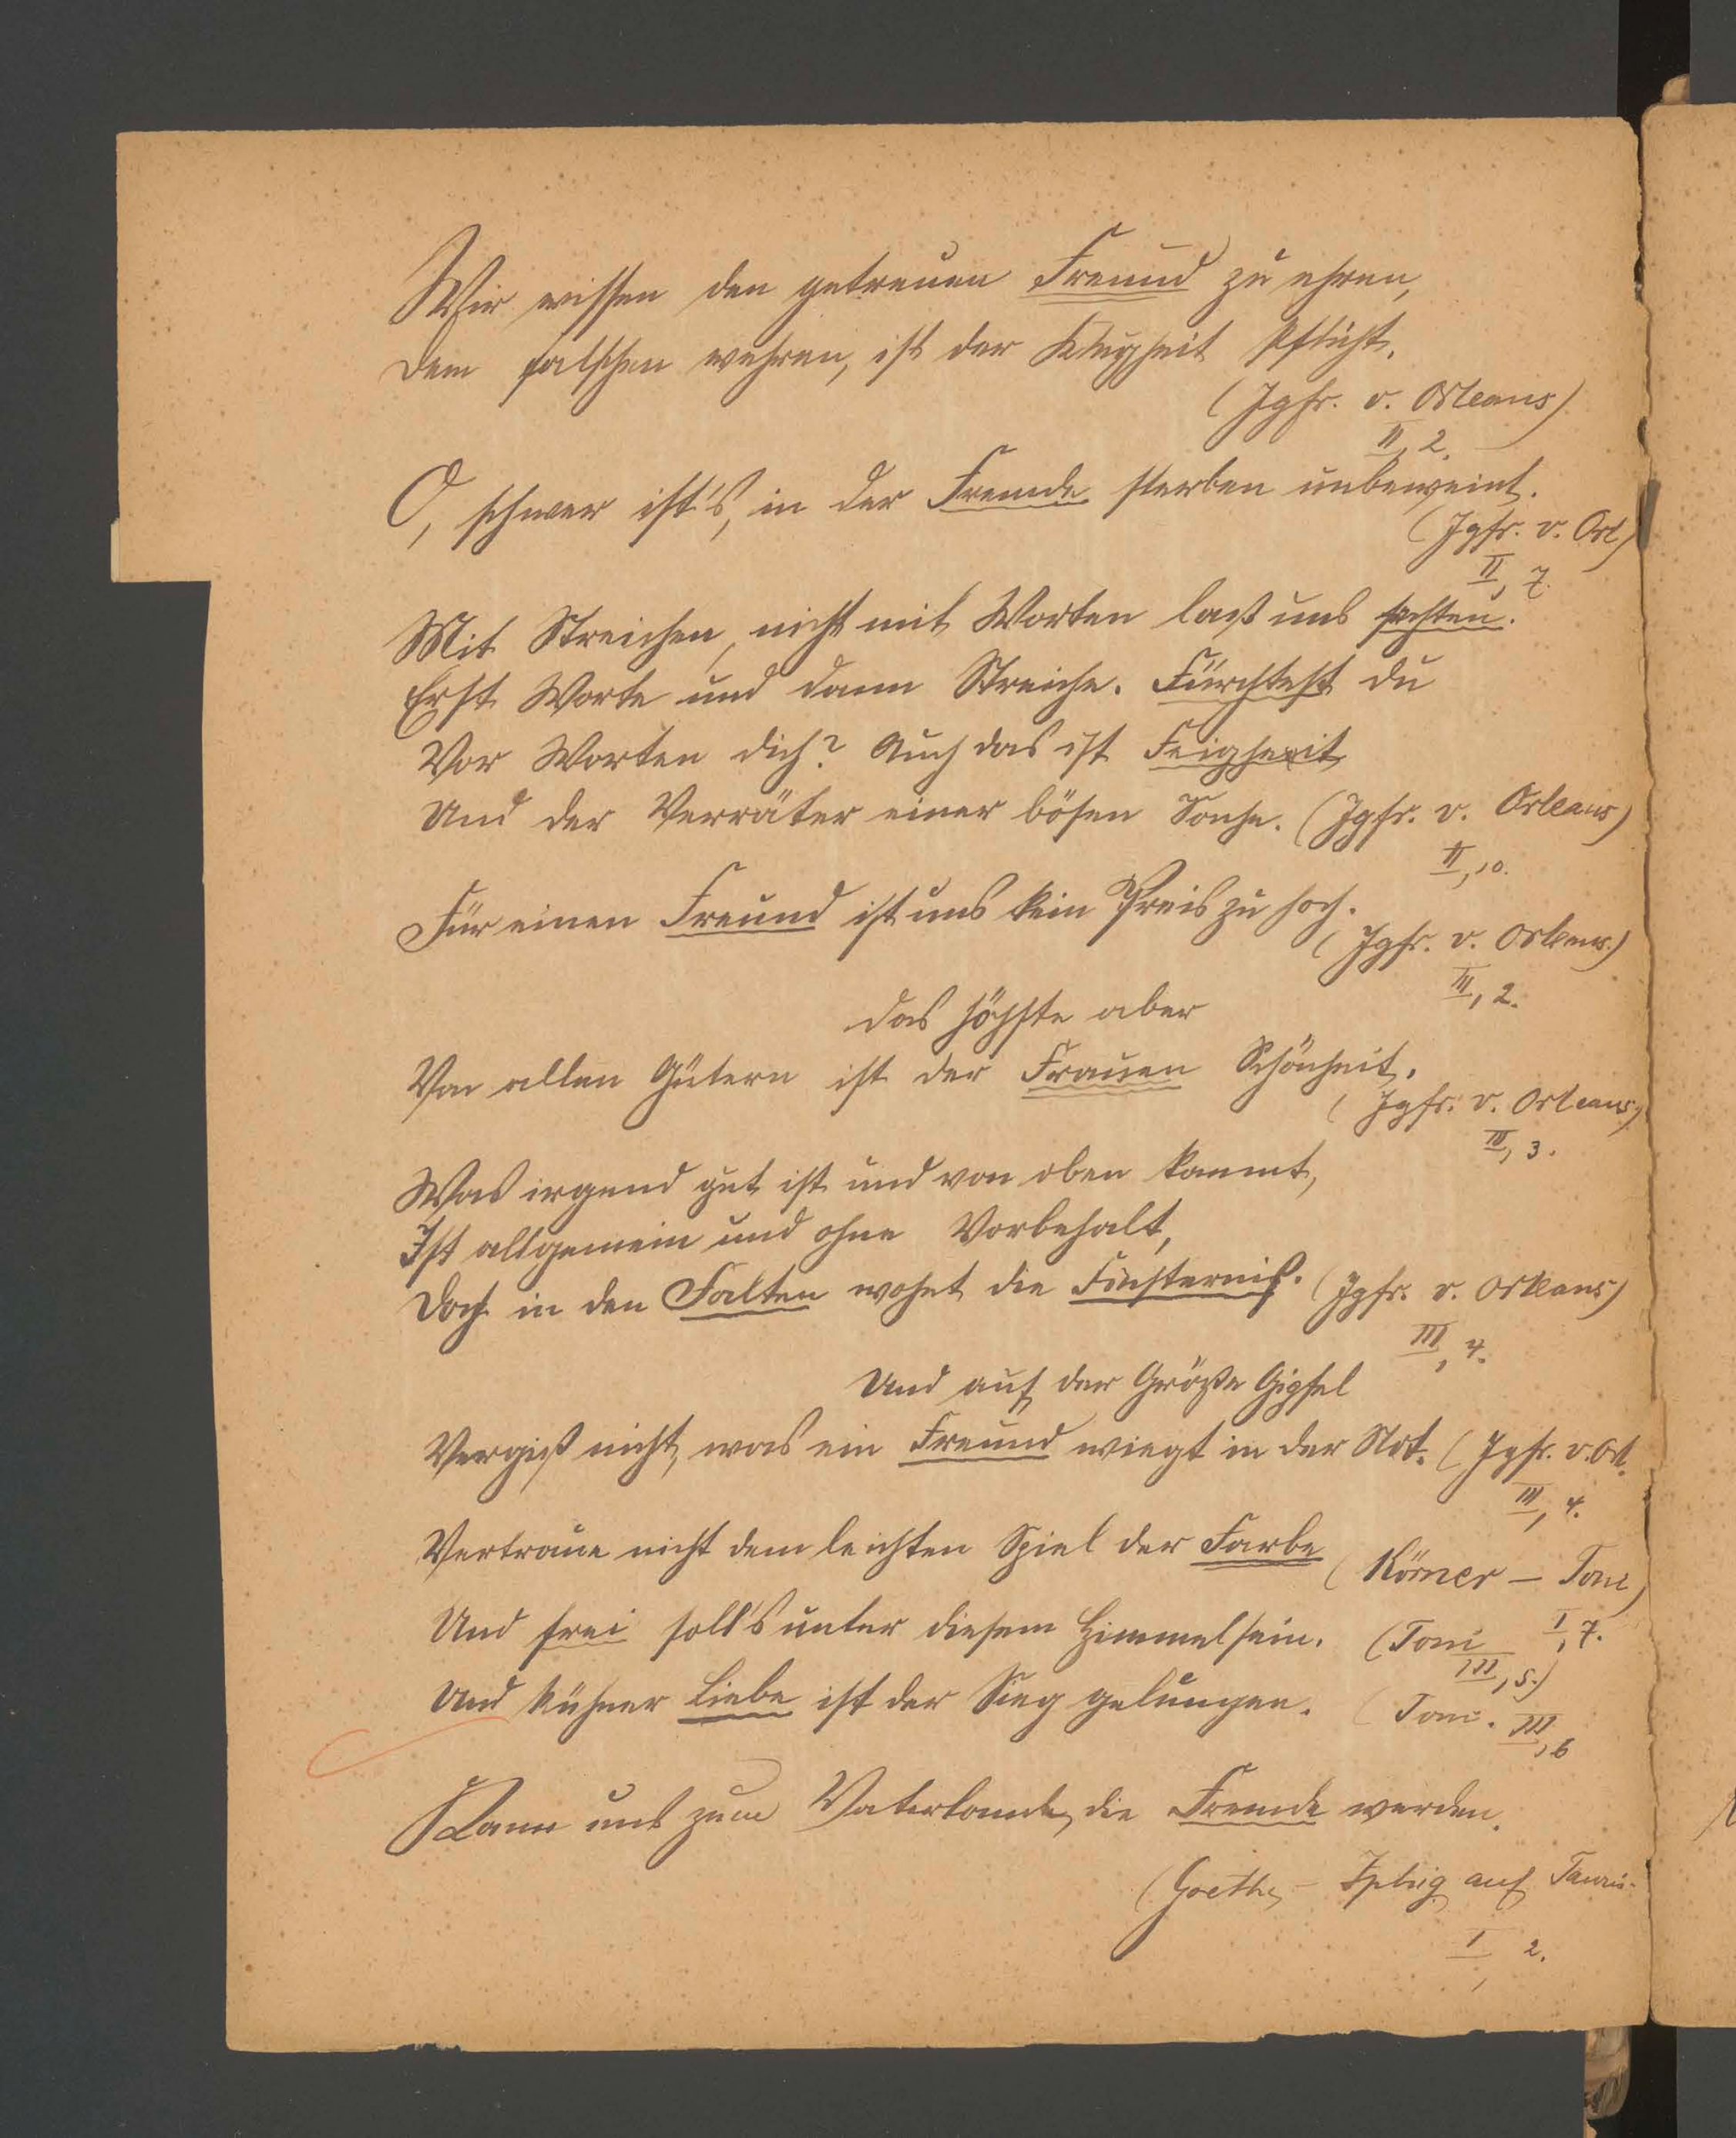 Wir wissen den getreuen Freund zu ehren,
Dem falschen wehren, ist der Klugheit Pflicht.
(Jgfr. v. Orleans)
II, 2.
O, schwer ist's, in der Fremde sterben unbeweint.
(Jgfr. v. Orl)
II, 7.
Mit Streichen, nicht mit Worten laß uns fechten.
Erst Worte und dann Streiche. Fürchtest du
Vor Worten dich? Auch das ist Feigheit
Und der Verräter einer bösen Sache. (Jgfr. v. Orleans)
II, 10.
Für einen Freund ist uns kein Preis zu hoch.
(Jgfr. v. Orleans.)
III, 2.
das höchste aber
Von allen Gütern ist der Frauen Schönheit.
(Jgfr. v. Orleans)
III, 3.
Was irgend gut ist und von oben kommt,
Ist allgemein und ohne Vorbehalt,
Doch in den Falten wohnt die Finsternis. (Jgfr. v. Orleans)
III, 4.
Und auf der Größe Gipfel
Vergiß nicht, was ein Freund wiegt in der Not. (Jgfr. v. Orl.
III, 4.
Vertraue nicht dem leichten Spiel der Farbe (Körner – Toni)
I, 7.
Und frei soll's unter diesem Himmel sein. (Toni
III, 5.)
Und kühner Liebe ist der Sieg gelungen. (Toni. III, 6
Kann uns zum Vaterlande die Fremde werden.
(Goethe – Iphig auf Tauris.
I, 2.